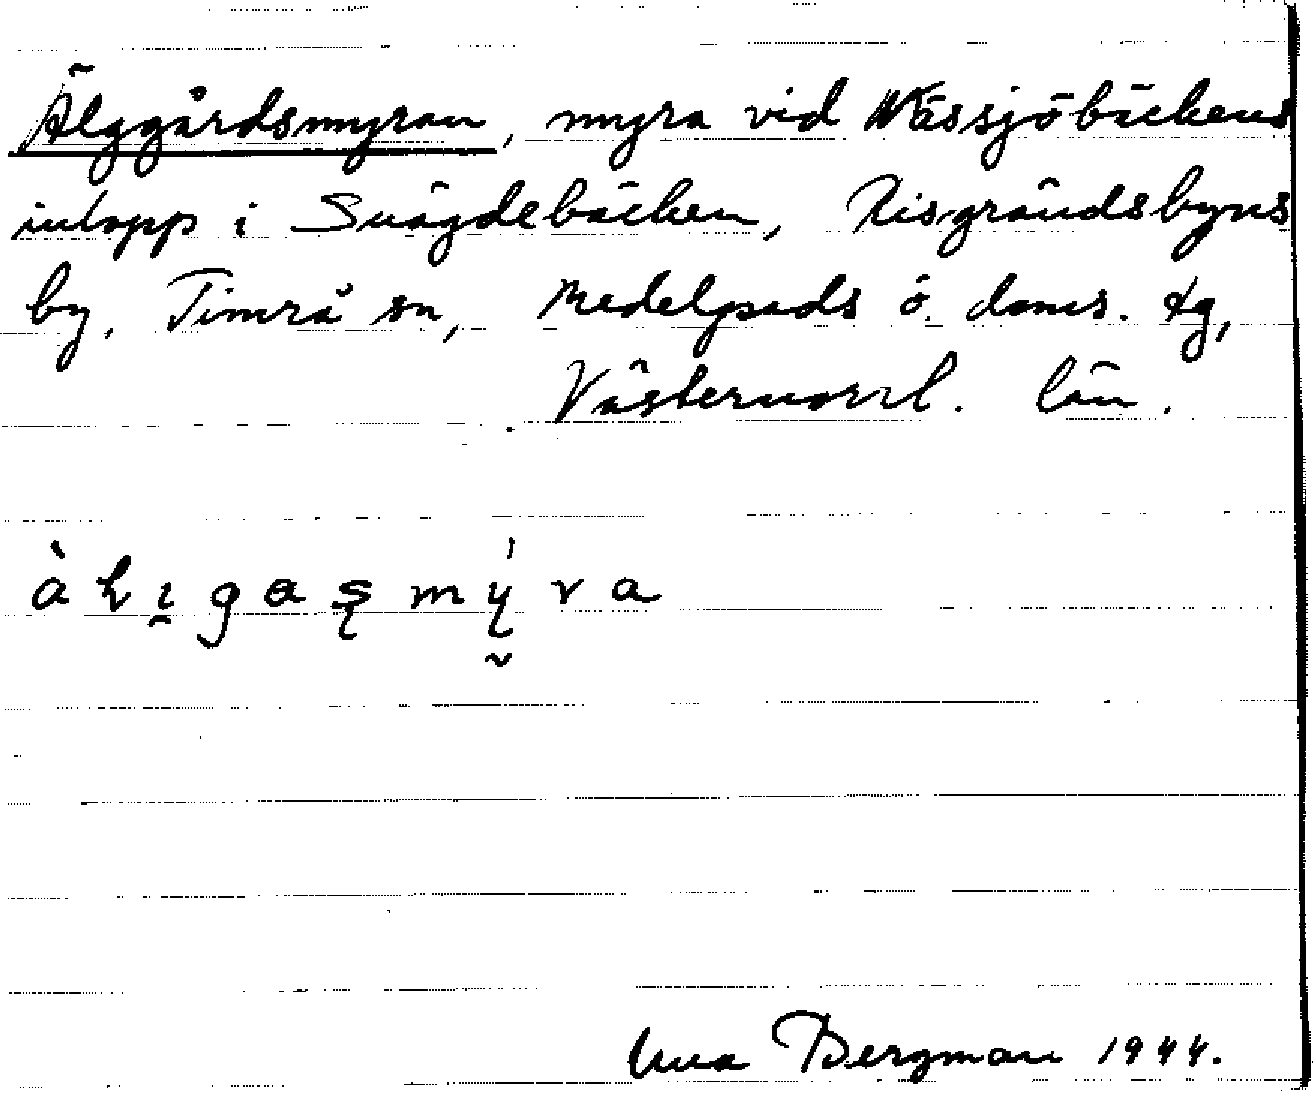 Älggårdsmyran, myra vid Nässjöbäckens
inlopp i Snägdebäcken, Risgrändsbyns
by, Timrå sn, Medelpads ö. doms. tg,
Västernorrl. län.
Una Bergman 1944.